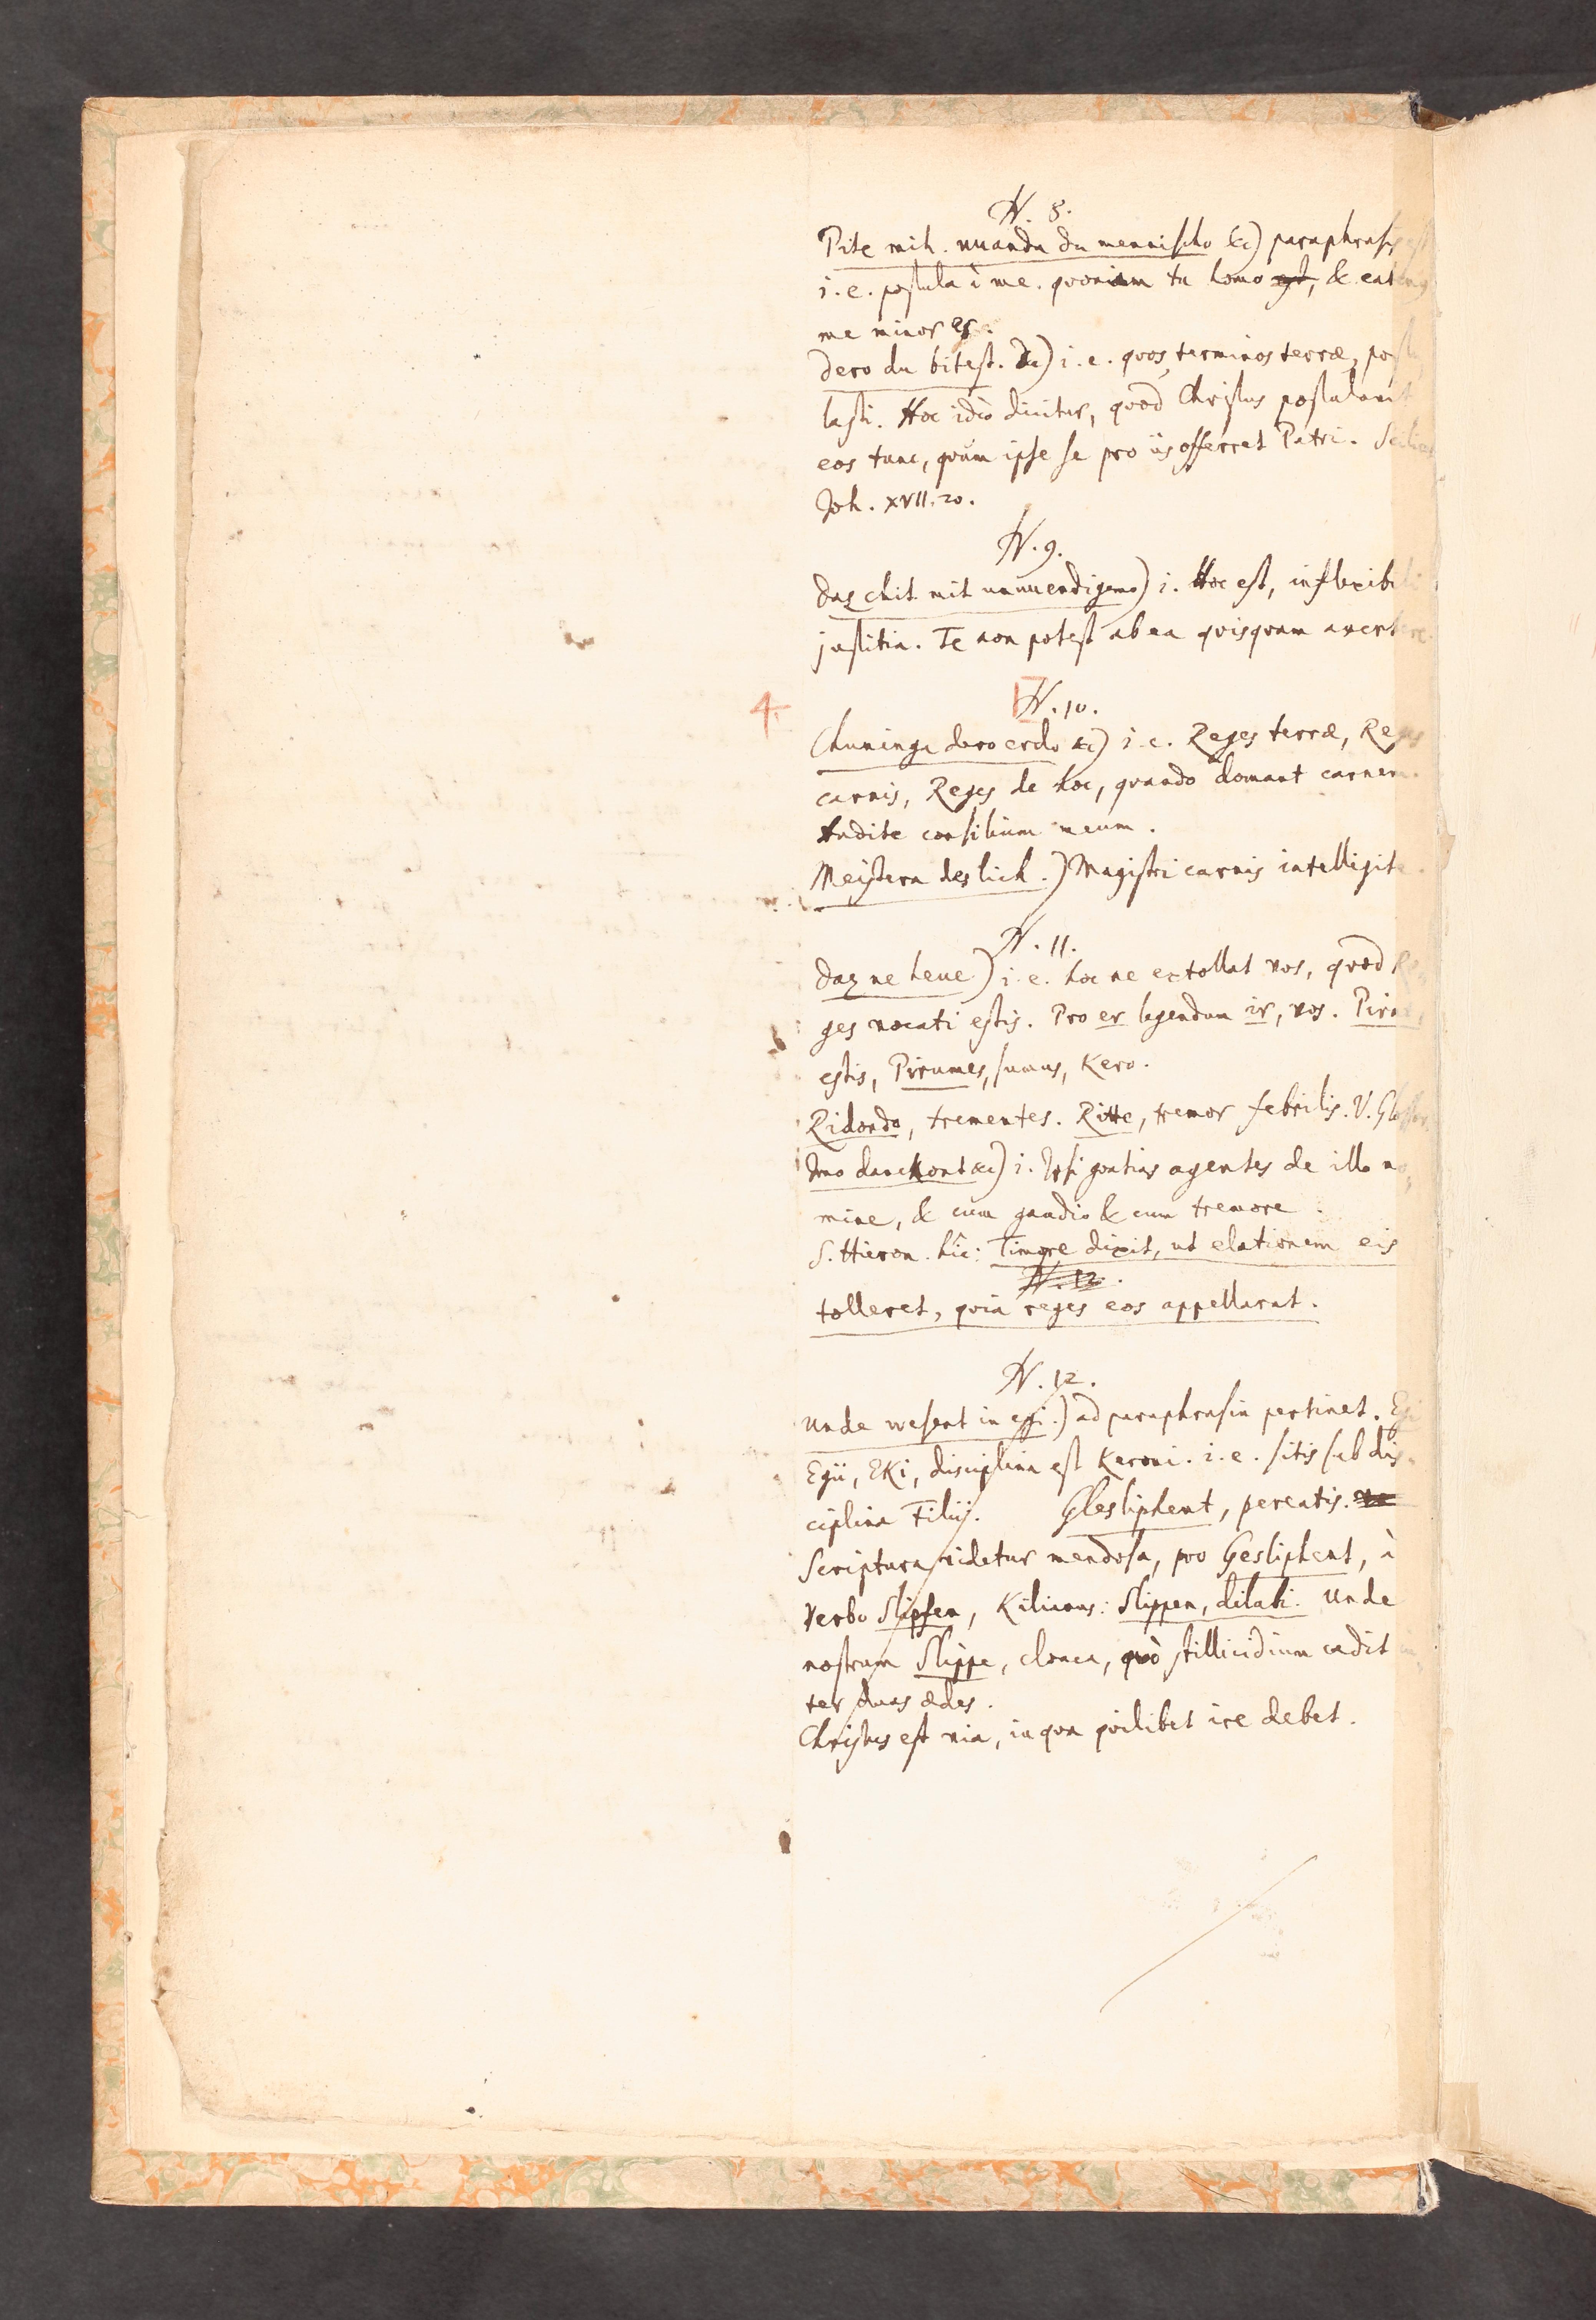 N. 8.
Pite mih. uuanda du mennischo &c) paraphrasis est
i. e. postula à me. quoniam tu homo est, & eatenus
me minor es.
dero du bitest. &c) i. e. quos terminos terræ, postu
lasti. Hoc ideò dicitur, quòd Christus postulavit
eos tunc, quùm ipse se pro iis offerret Patri. Scilicet
Joh. XVII. 20.
N. 9.
daz chit mit unuuendigemo) i. Hoc est, inflexibili
justitia. Te non potest ab ea quisquam avertere.
4.
N. 10.
Chuninga dero erdo &c) i. e. Reges terræ, Reges
carnis, Reges de hoc, quando domant carnem.
Audite consilium meum.
Meistera des lich.) Magistri carnis intelligite.
N. 11.
daz ne heue) i. e. hoc ne extollat vos, quòd Re
ges vocati estis. Pro er legendum ir, vos. Pirnt,
estis, Pirumes, sumus, Kero.
Ridondo, trementes. Ritte, tremor febrilis. V. Glossar.
Imo danckont &c) i. Ipsi gratias agentes de illo no,
mine, & cum gaudio & cum tremore
S. Hieron. hîc: Timore dixit, ut elationem eis
N. 12.
tolleret, quia reges eos appellarat.
N. 12.
Unde wesent in egi.) ad paraphrasin pertinet. Egi
Egii, EKi, disciplina est Keroni. i. e. sitis sub dis-
ciplina Filij. Glesliphent, pereatis.
Scriptura videtur mendosa, pro Gesliphent, à
Verbo Slipfen, Kilianus: Slippen, dilabi. Unde
nostrum Slippe, cloaca, quò stillicidium cadit in,
ter duas ædes.
Christus est via, in qua quilibet ire debet.